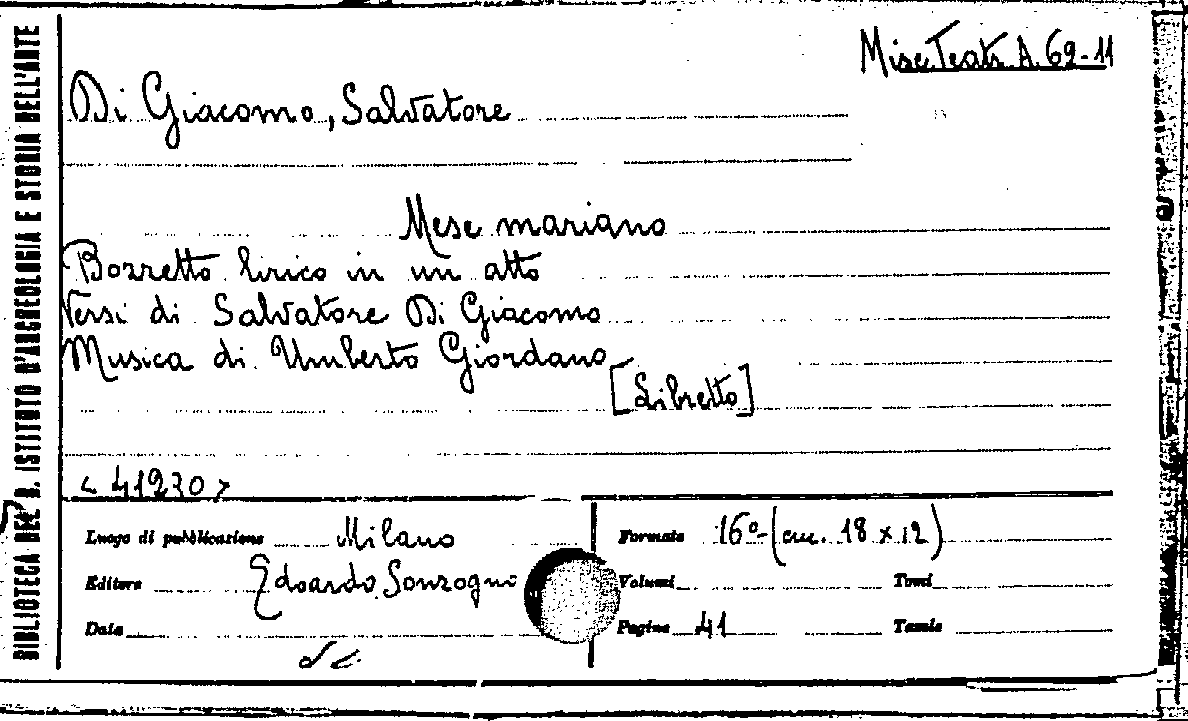 BIBLIOTECA DEL R. ISTITUTO D'ARCHEOLOGIA E STORIA DELL'ARTE
Misc. Teatr. A. 69-11
Di Giacomo, Salvatore
Mese mariano
Bozzetto lirico in un atto
Versi di Salvatore Di Giacomo
Musica di Umberto Giordano
[Libretto]
<41230>
Luogo di pubblicazione Milano
Formato 16º (cm. 18 x 12)
Editore Edoardo Sonzogno
Volumi Tomi
Data
Pagine 41 Tavole